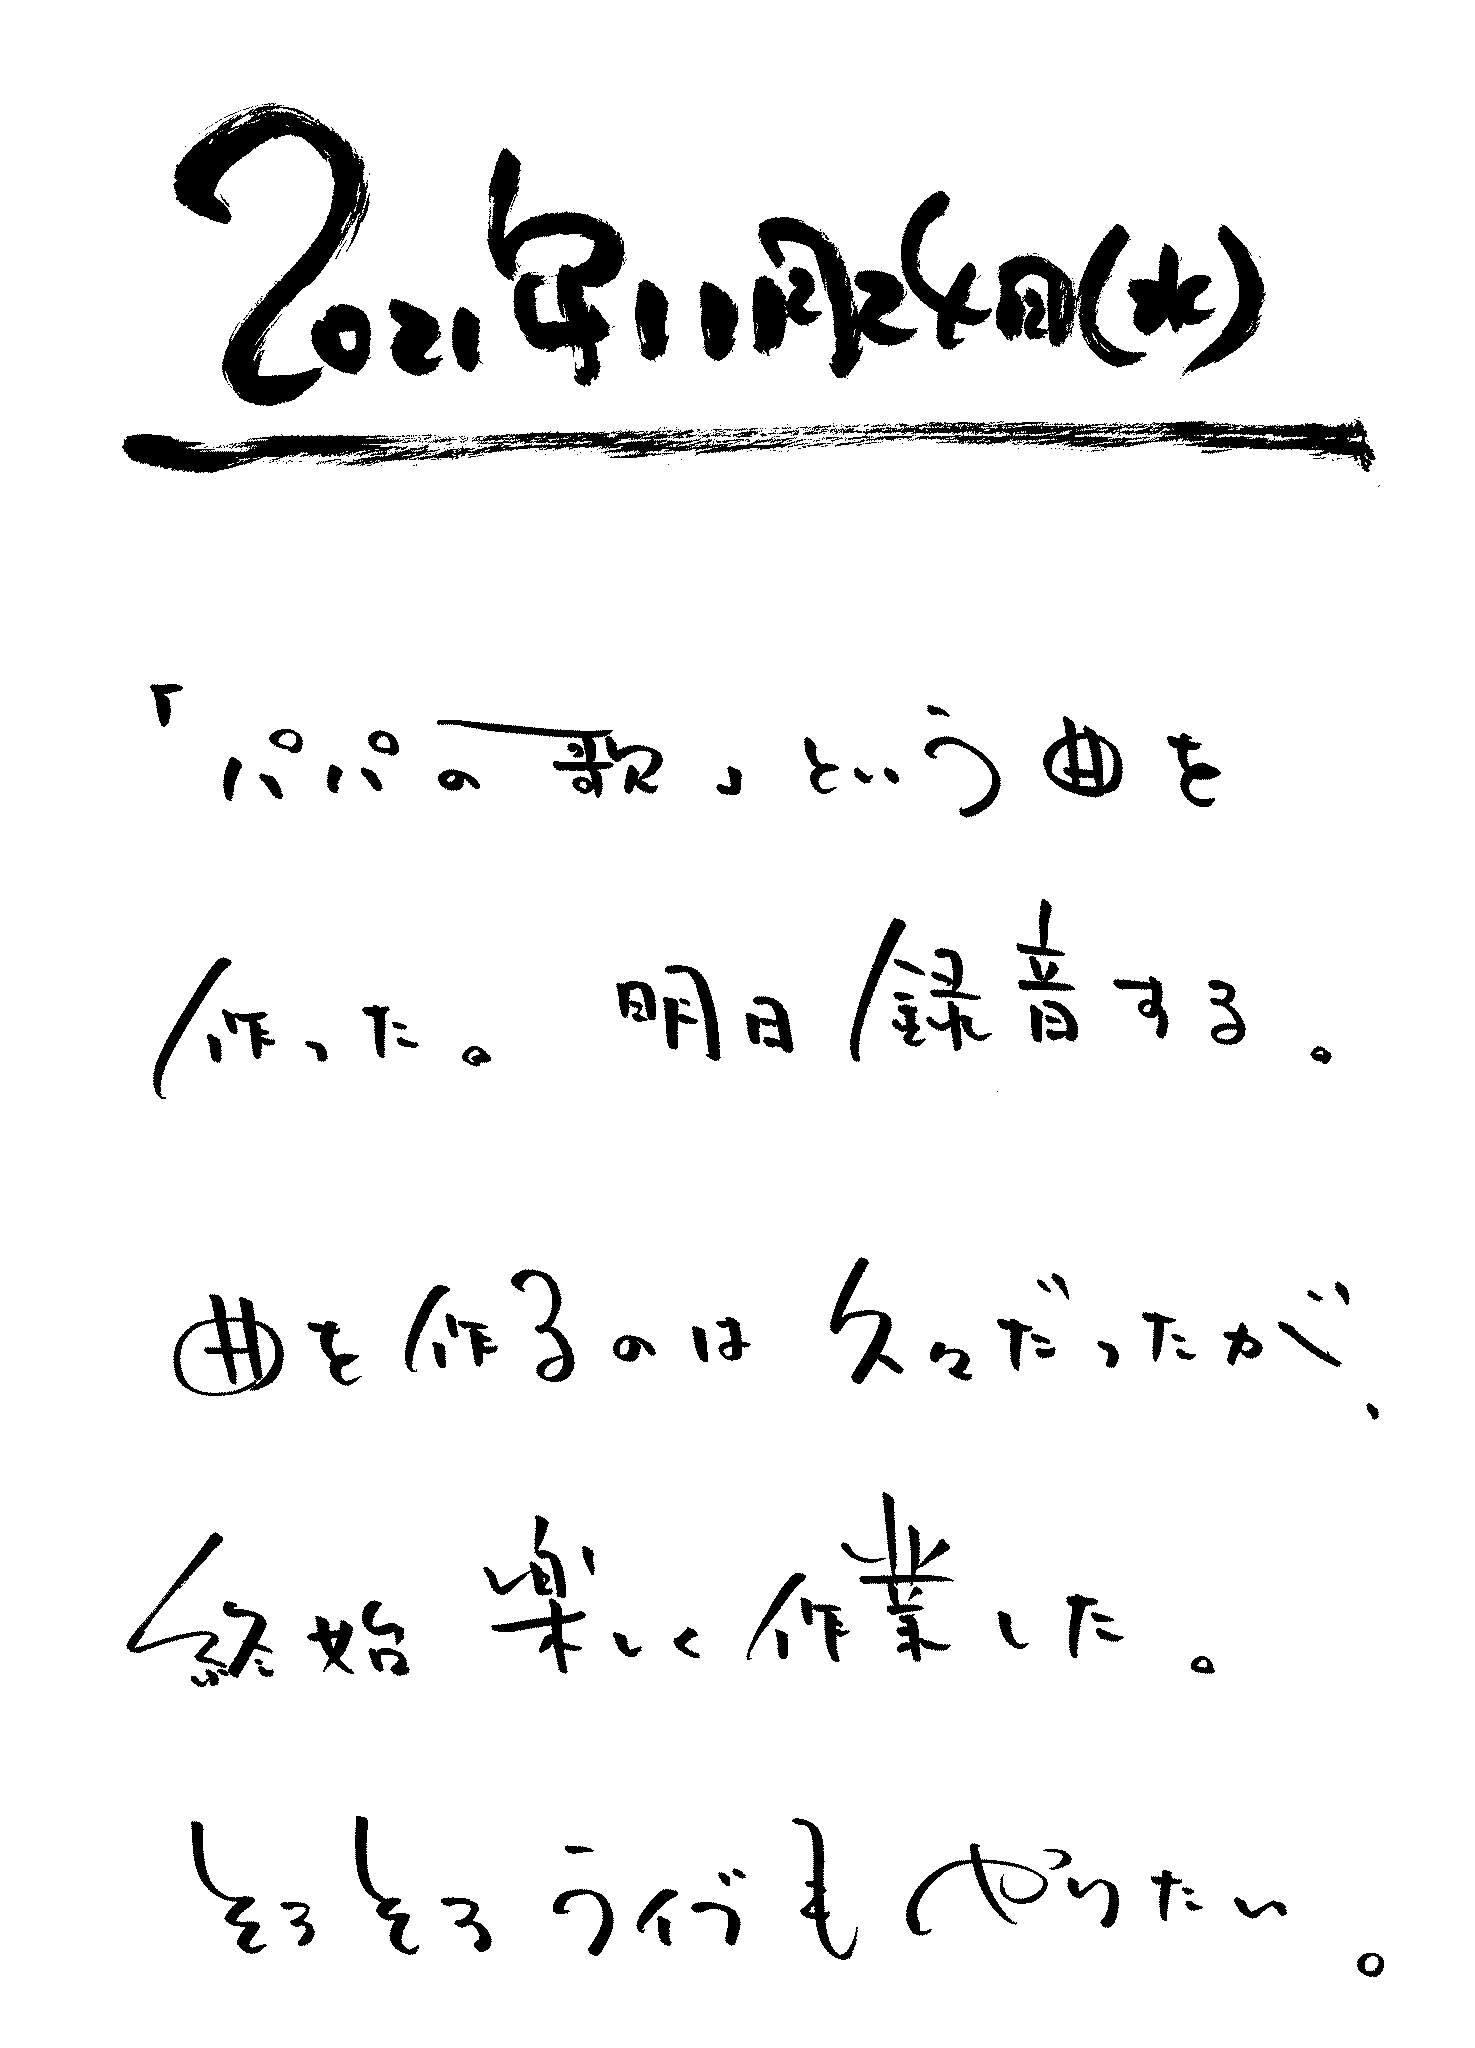 2021年11月24日(水)
「パパの歌」という曲を
作った。明日録音する。
曲を作るのは久々だったが、
終始楽しく作業した。
そろそろライブもやりたい。